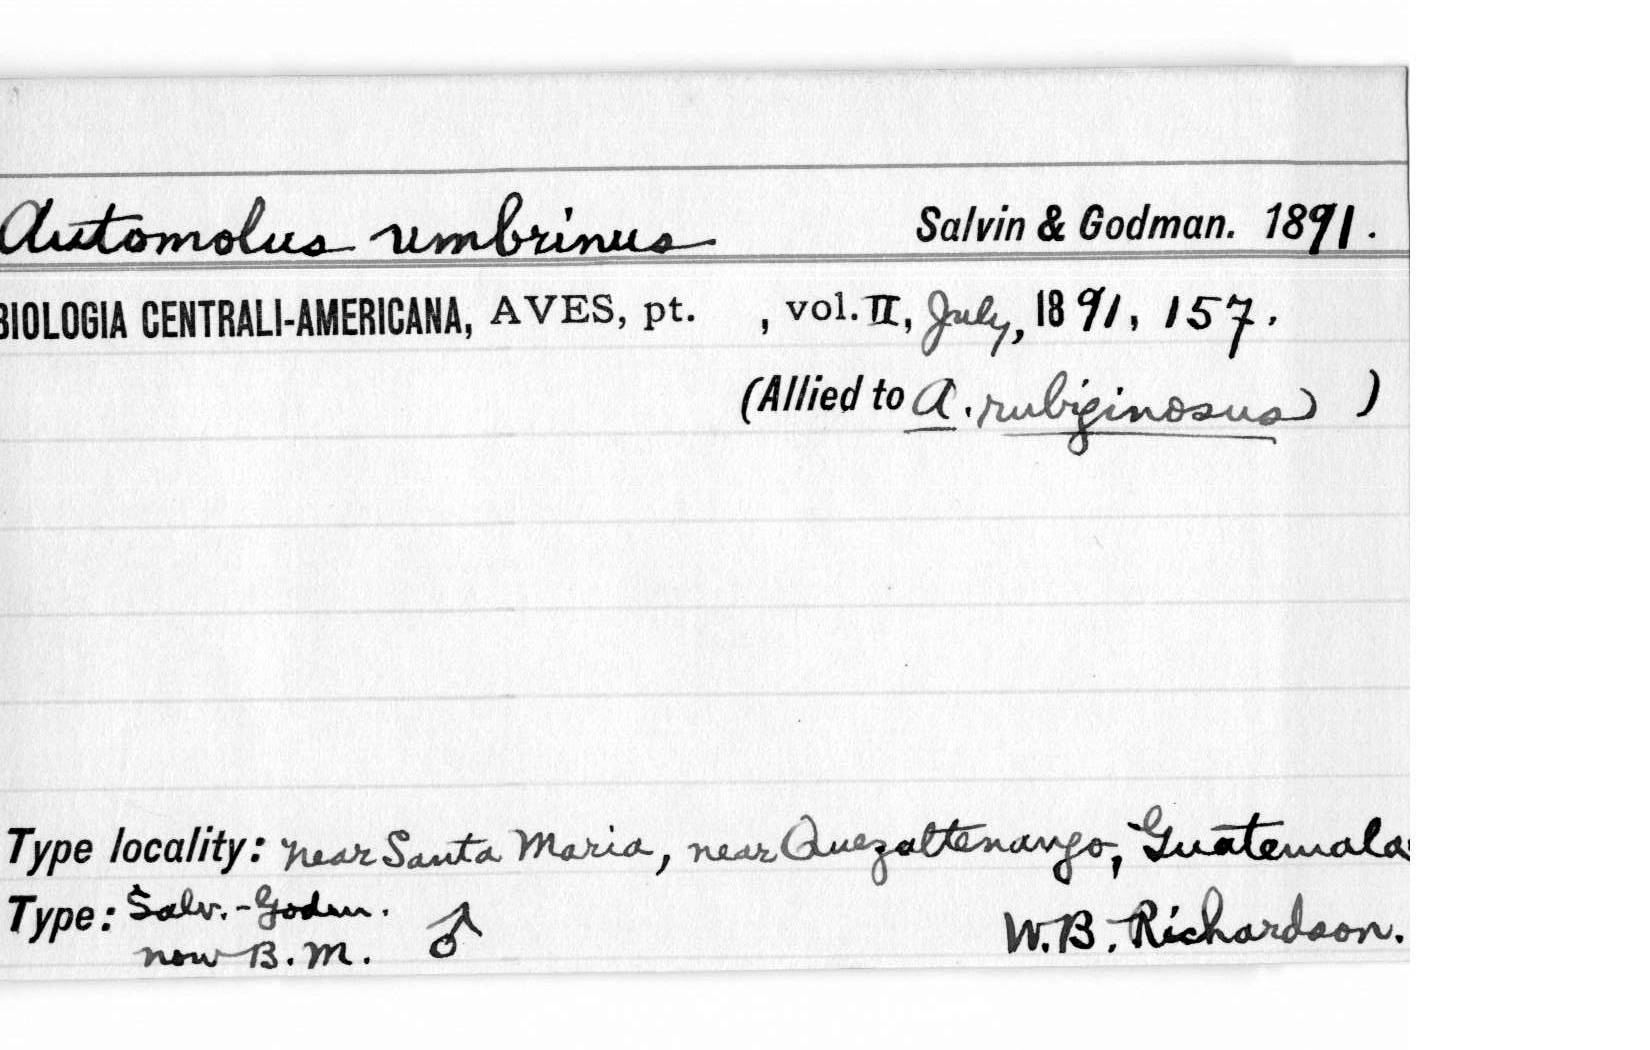 Automolus umbrinus Salvin & Godman. 1891.
BIOLOGIA CENTRALI-AMERICANA, AVES, pt. , vol. II, July, 1891, 157.
(Allied to A. rubiginosus )
Type locality: near Santa Maria, near Quezaltenango, Guatemala
Type: Salv.-Godm. ♂ W. B. Richardson.
now B. M.